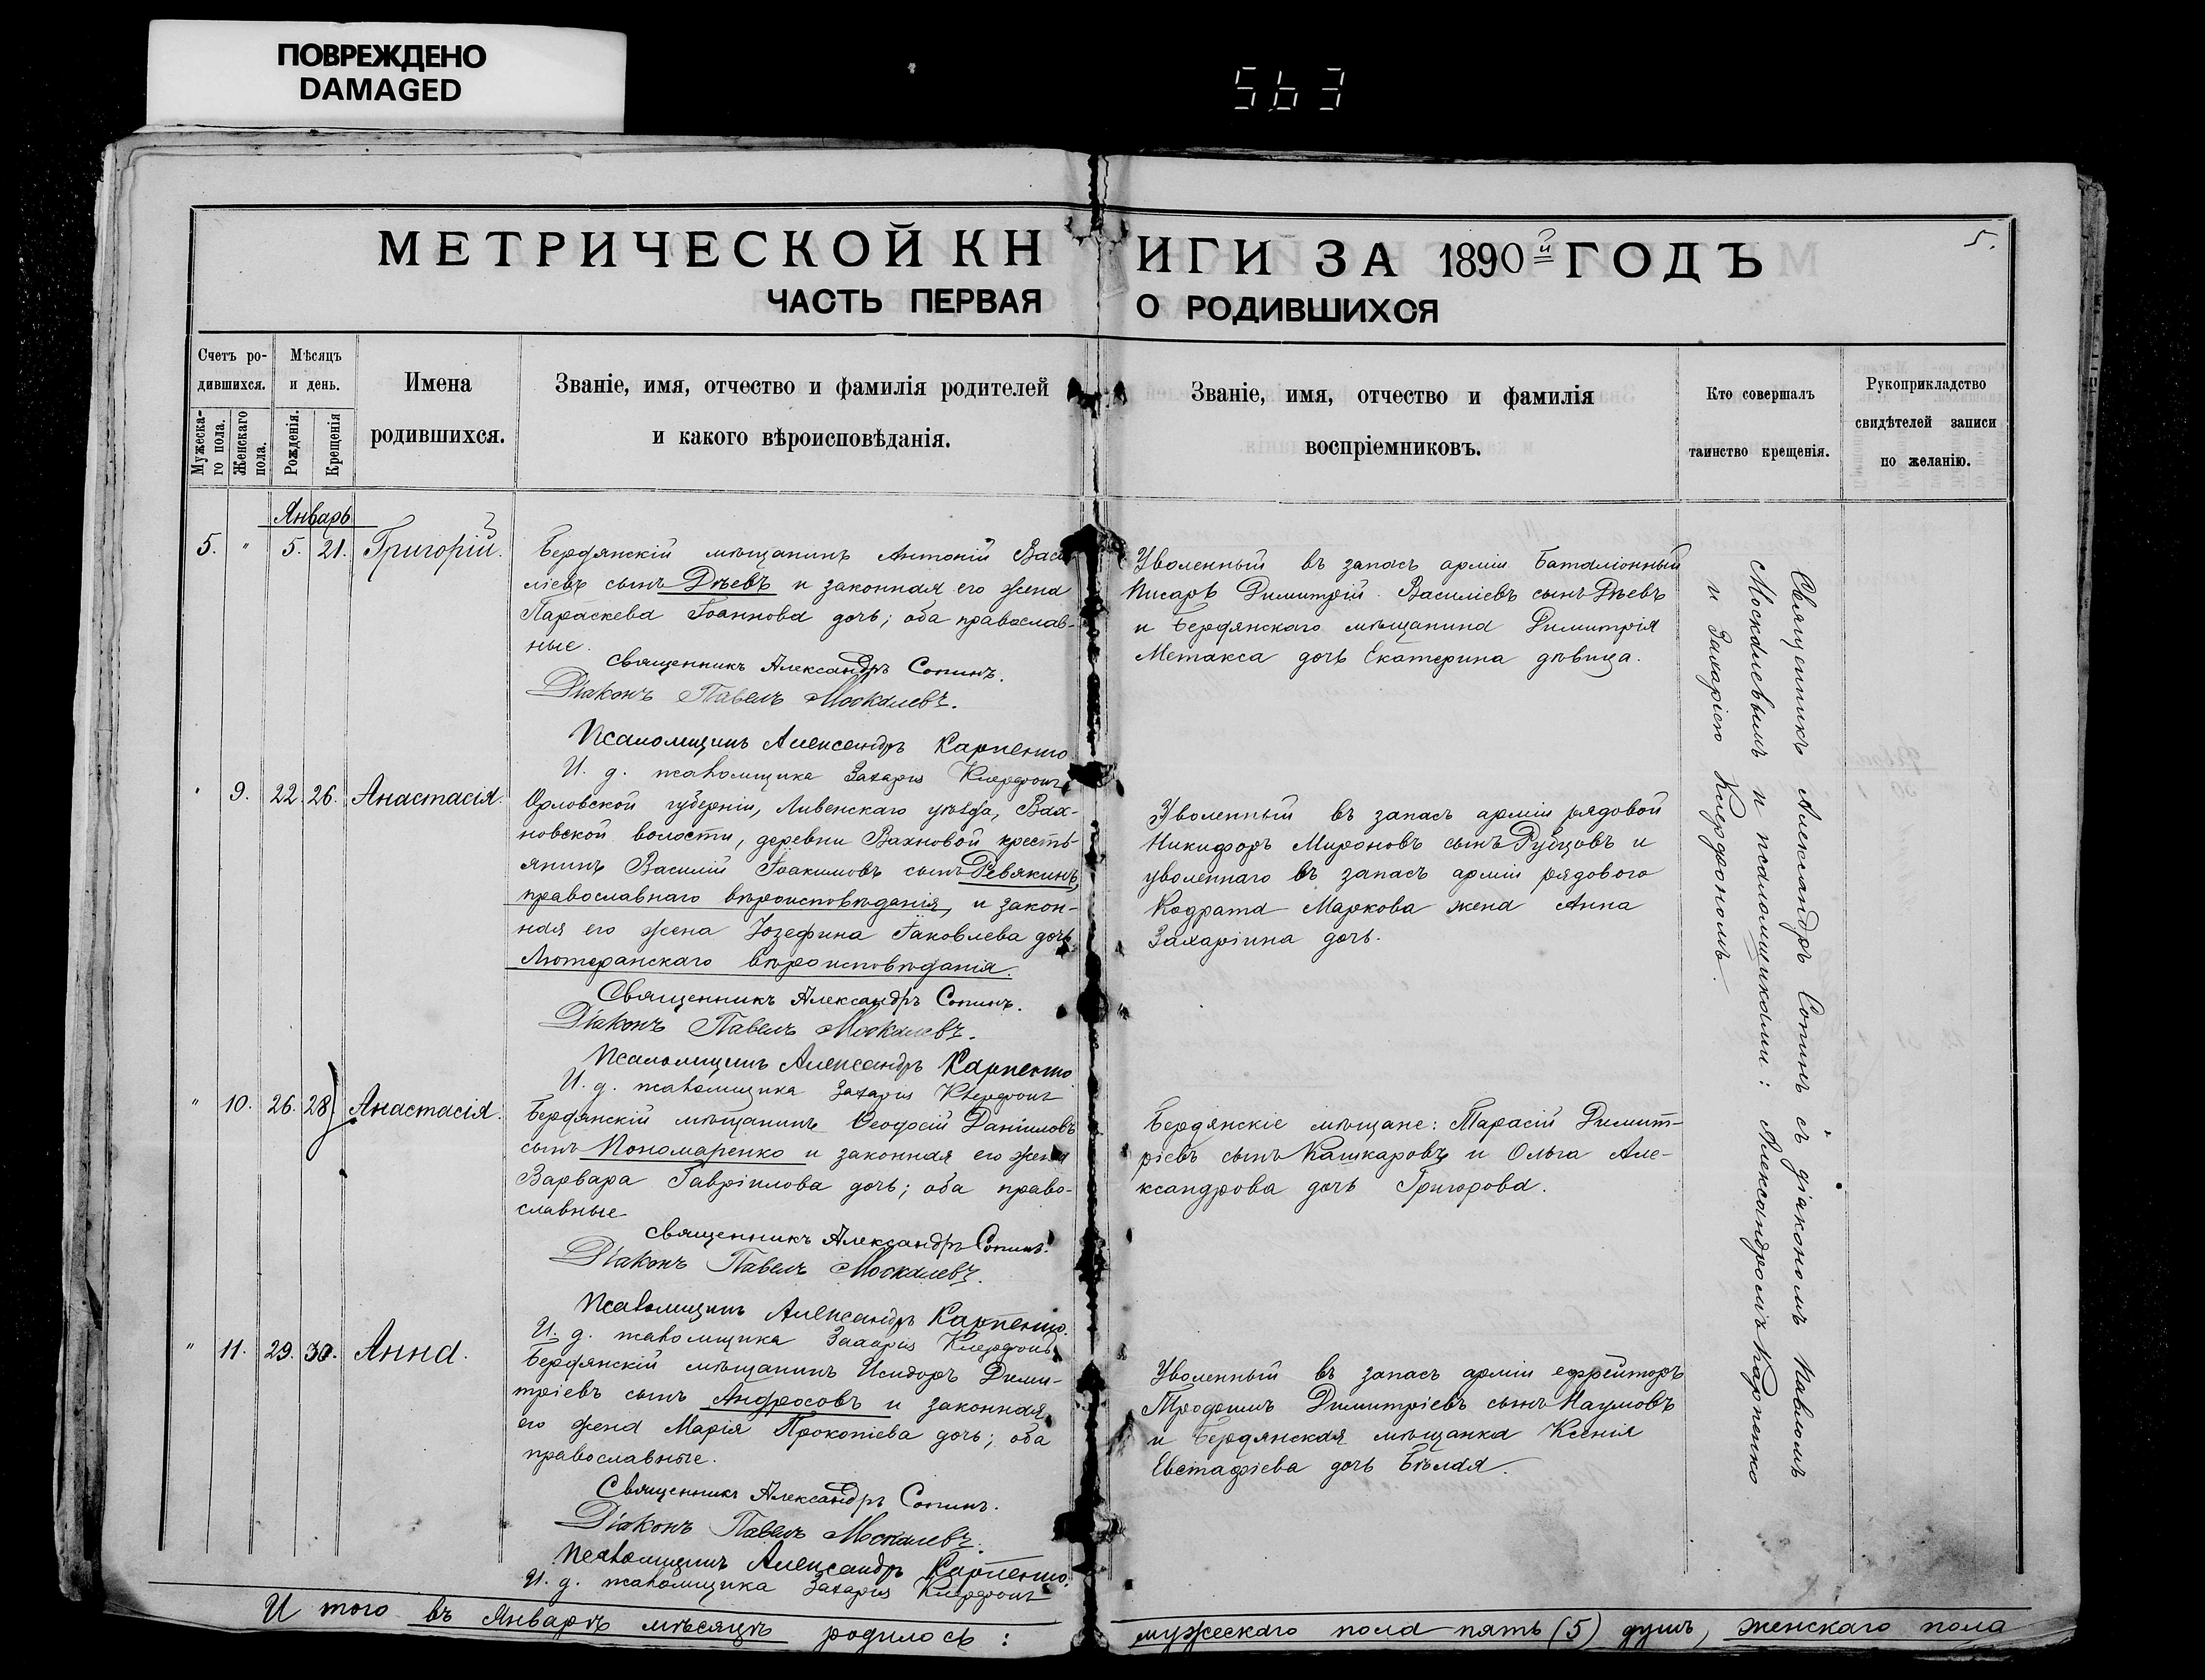 ПОВРЕЖДЕНО
DAMAGED
563
5.
МЕТРИЧЕСКОЙ КНИГИ ЗА 1890й ГОДЪ
ЧАСТЬ ПЕРВАЯ О РОДИВШИХСЯ
Счетъ ро-
дившихся.
Мужеска-
го пола.
Женскаго
пола.
Мѣсяцъ
и день.
Рожденія.
Крещенія
Имена
родившихся.
Званіе, имя, отчество и фамилія родителей
и какого вѣроисповѣданія.
Званіе, имя, отчество и фамилія
воспріемниковъ.
Кто совершалъ
таинство крещенія.
Рукоприкладство
свидѣтелей записи
по желанію.
Январь
5. " 5. 21. Григорій.
Бердянскій мѣщанинъ Антоній Васи-
ліевъ сынъ Дѣевъ и законная его жена
Параскева Іоаннова дочь; оба православ-
ные.
Священникъ Александръ Сопинъ.
Діаконъ Павелъ Москалевъ.
Псаломщикъ Александръ Карпенко
И. д. псаломщика Захарія
Уволенный въ запасъ арміи Баталіонный
Писарь Димитрій Василіевъ сынъ Дѣевъ
и Бердянскаго мѣщанина Димитрія
Метакса дочь Екатерина дѣвица.
" 9. 22. 26. Анастасія.
Орловской губерніи, Ливенскаго уѣзда, Вах-
новской волости, деревни Вахновой кресть-
янинъ Василій Іоакимовъ сынъ Ревякинъ,
православнаго вѣроисповѣданія, и закон-
ная его жена Іозефина Іаковлева дочь
Лютеранскаго вѣроисповѣданія.
Священникъ Александръ Сопинъ.
Діаконъ Павелъ Москалевъ.
Псаломщикъ Александръ Карпенко
И. д. псаломщика Захарія
Уволенный въ запасъ арміи рядовой
Никифоръ Мироновъ сынъ Рубцовъ и
уволеннаго въ запасъ арміи рядового
Кодрата Маркова жена Анна
Захаріина дочь.
" 10. 26. 28. Анастасія.
Бердянскій мѣщанинъ Ѳеодосій Даніиловъ
сынъ Пономаренко и законная его жена
Варвара Гавріилова дочь; оба право-
славные
Священникъ Александръ Сопинъ.
Діаконъ Павелъ Москалевъ.
Псаломщикъ Александръ Карпенко.
И. д. псаломщика Захарія
Бердянскіе мѣщане: Тарасій Димит-
ріевъ сынъ Кашкаровъ и Ольга Але-
ксандрова дочь Григорова.
" 11. 29. 30. Анна.
Бердянскій мѣщанинъ Исидоръ Дими-
тріевъ сынъ Андросовъ и законная
его жена Марія Прокопіева дочь; оба
православные.
Священникъ Александръ Сопинъ.
Діаконъ Павелъ Москалевъ.
Псаломщикъ Александръ Карпенко.
И. д. псаломщика Захарія
Уволенный въ запасъ арміи ефрейторъ
Трофимъ Димитріевъ сынъ Наумовъ
и Бердянская мѣщанка Ксенія
Евстафіева дочь Бѣлая.
Священникъ Александръ Сопинъ съ діакономъ Павломъ
Москалевымъ и псаломщиками: Александромъ Карпенко
и Захаріею
И того въ Январѣ мѣсяцѣ родилось: мужескаго пола пять (5) душъ, женскаго пола